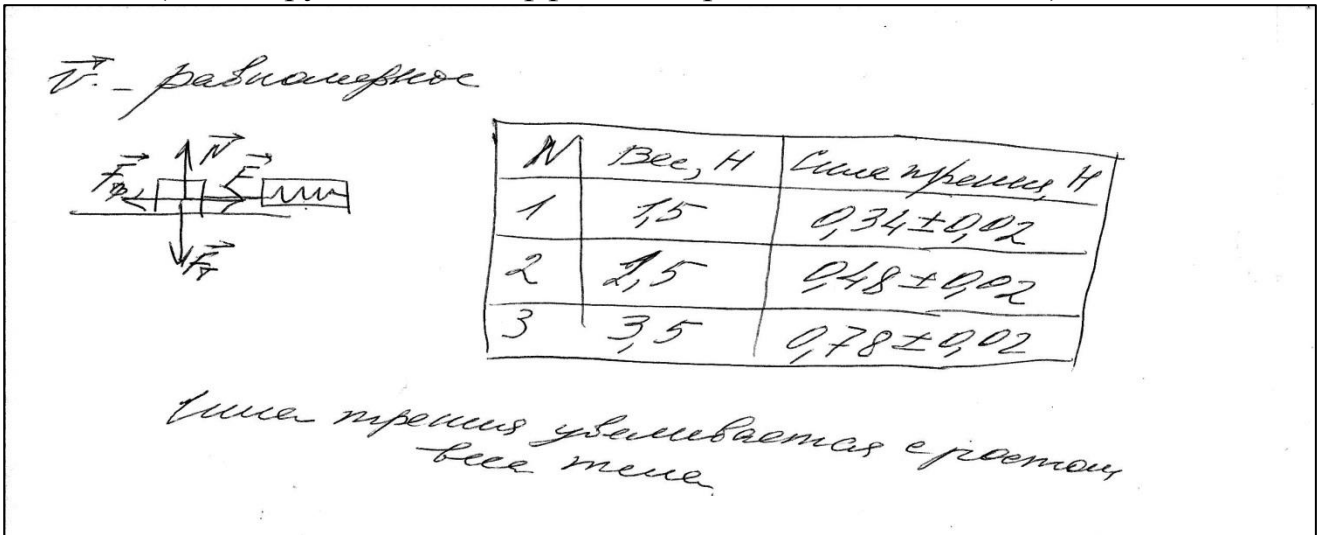 v. - равномерное
N
Fтр F
Fт
N Вес, Н Сила трения, Н
1 1,5 0,34±0,02
2 2,5 0,48±0,02
3 3,5 0,78±0,02
Сила трения увеливается с ростом
веса тела